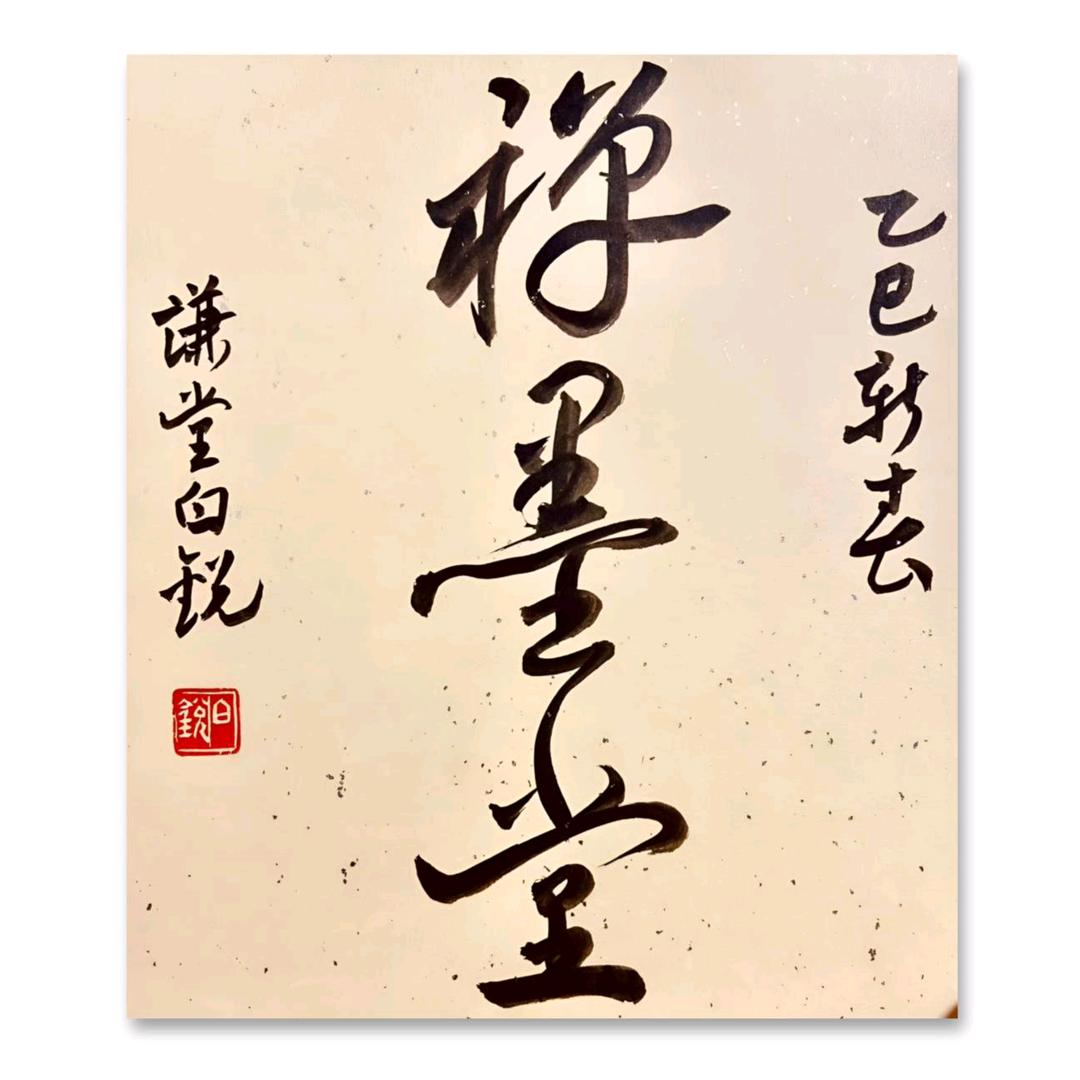 乙巳新春
禅墨堂
謙堂白锐
白锐